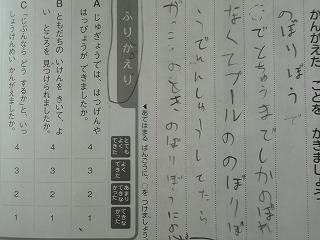 かんがえた ことを かきましょう
のぼりぼうで
でとちゅうまでしかのぼれ
なくてプールののぼりぼ
うでれんしゅうしてたら
のときのぼりぼうにの
◀あてはまる ばんごうに、○を つけましょう。
ふりかえり
とても よく できた
よく できた
あまり できな かった
できな かった
A じゅぎょうでは、はつげんや
はっぴょうが できましたか。
4 3 2 1
B ともだちの いけんを きいて、よ
い ところを 見つけられましたか。
4 3 2 1
C 「じぶんなら どう するか」と、いっ
しょうけんめい かんがえましたか。
4 3 2 1